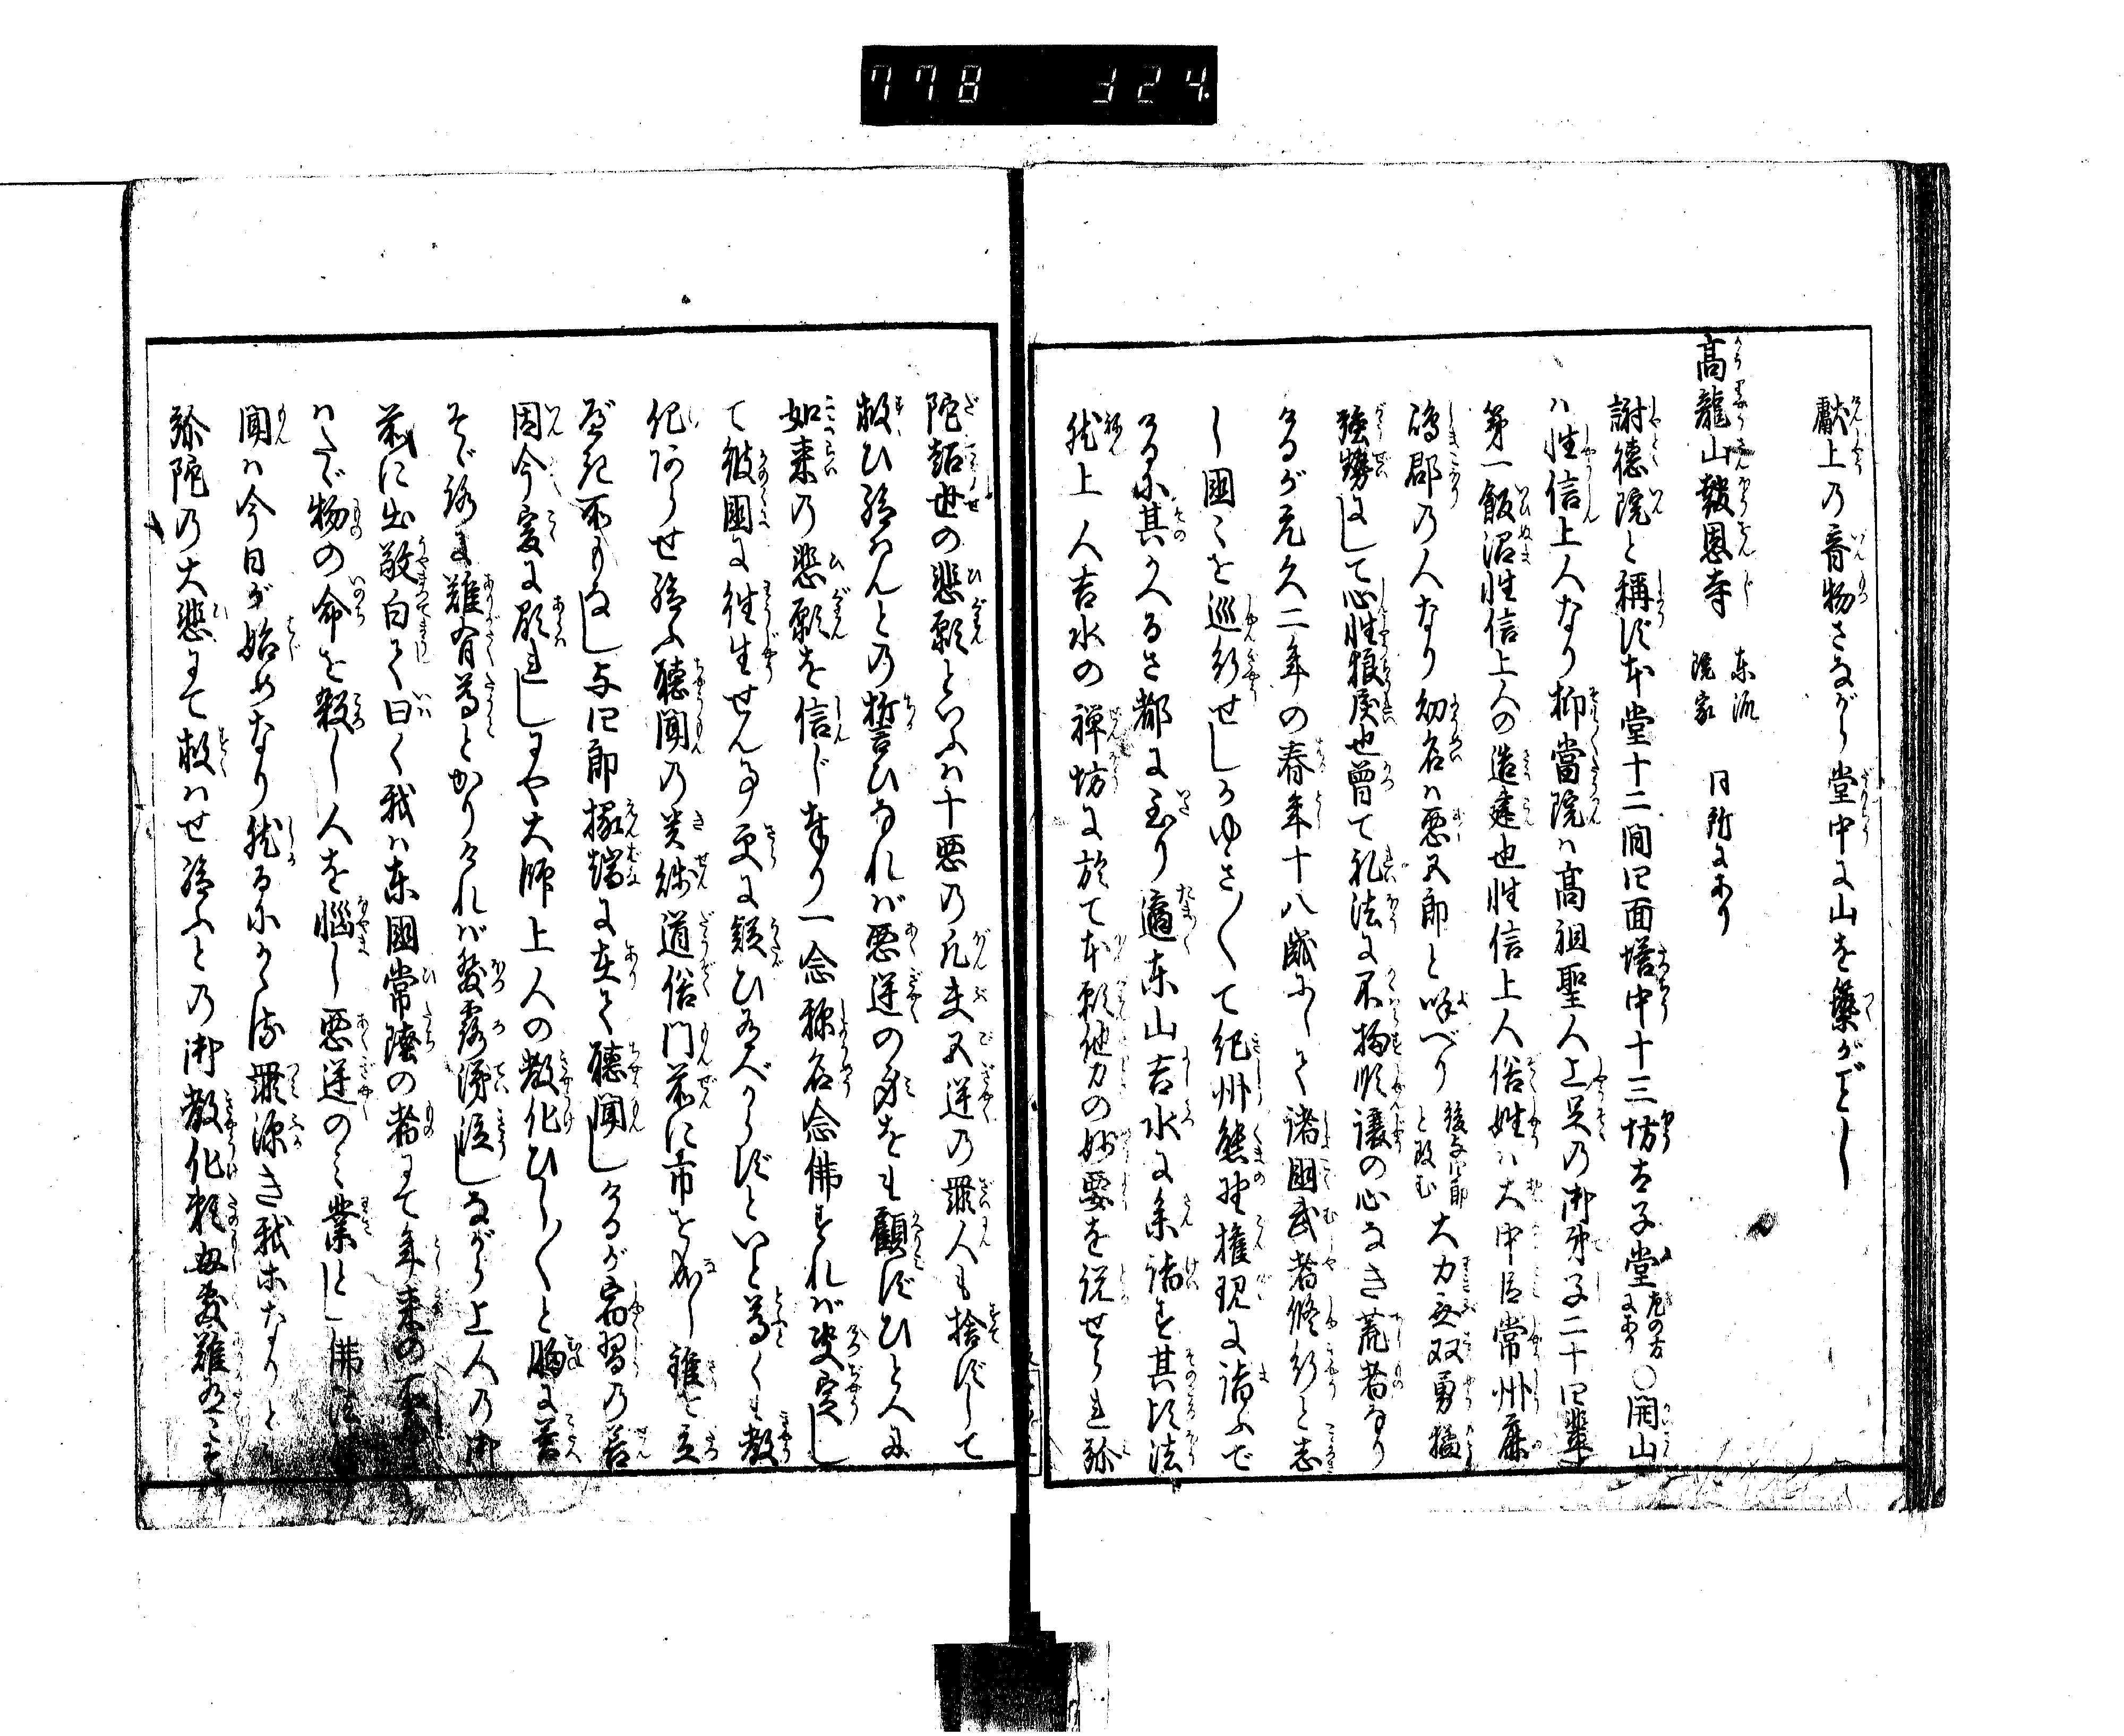 778 324
献上の音物さながら堂中に山を築がごとし
高龍山報恩寺 東派院家 同所にあり
謝徳院と称す本堂十二間四面塔中十三坊太子堂 《左の方にあり》 ○開山
ハ性信上人なり抑當院ハ高祖聖人上足の御弟子二十四輩
第一飯沼性信上人の造建也性信上人俗姓ハ大中臣常州鹿
嶋郡の人なり幼名ハ悪五郎と呼べり 後与四郎と改む 大力無双勇猛
強勢にして心性狼戻也曽て礼法に不拘順譲の心なき荒者なり
けるが元久二年の春年十八歳にして諸國武者修行と志
し國々を巡行せしかゆき〳〵て紀州熊野権現に詣ふで
其かへるさ都に至り適東山吉水に参詣す其比法
然上人吉水の禅坊に於て本願他力の妙要を説せられ弥
陀超世の悲願といふハ十悪の凡夫五逆の罪人も捨ずして
救ひ給はんとの誓ひなれバ悪逆の身をも顧ずひとへに
如来の悲願を信じ奉り一念称名念佛すれバ決定し
て彼國に往生せん事更に疑ひ有べからずといと尊くも教
化あらせ給ふ聴聞の貴賎道俗門前に市を成し錐を立
べき所もなし与四郎椽端に在て聴聞しけるが宿習の善
因今爰に顕れしにや大師上人の教化ひし〳〵と胸に答へ
そゞろに難有尊とかりけれバ發露涕泣しながら上人の御
前に出敬白て曰く我ハ東國常陸の者にて年来の
ハたゞ物の命を殺し人を悩し悪逆のミ業とし佛法
聞ハ今日が始めなり然るにかゝる罪深き我等なりとも
弥陀の大悲にて救ハせ給ふとの御教化頼母敷難有こそ